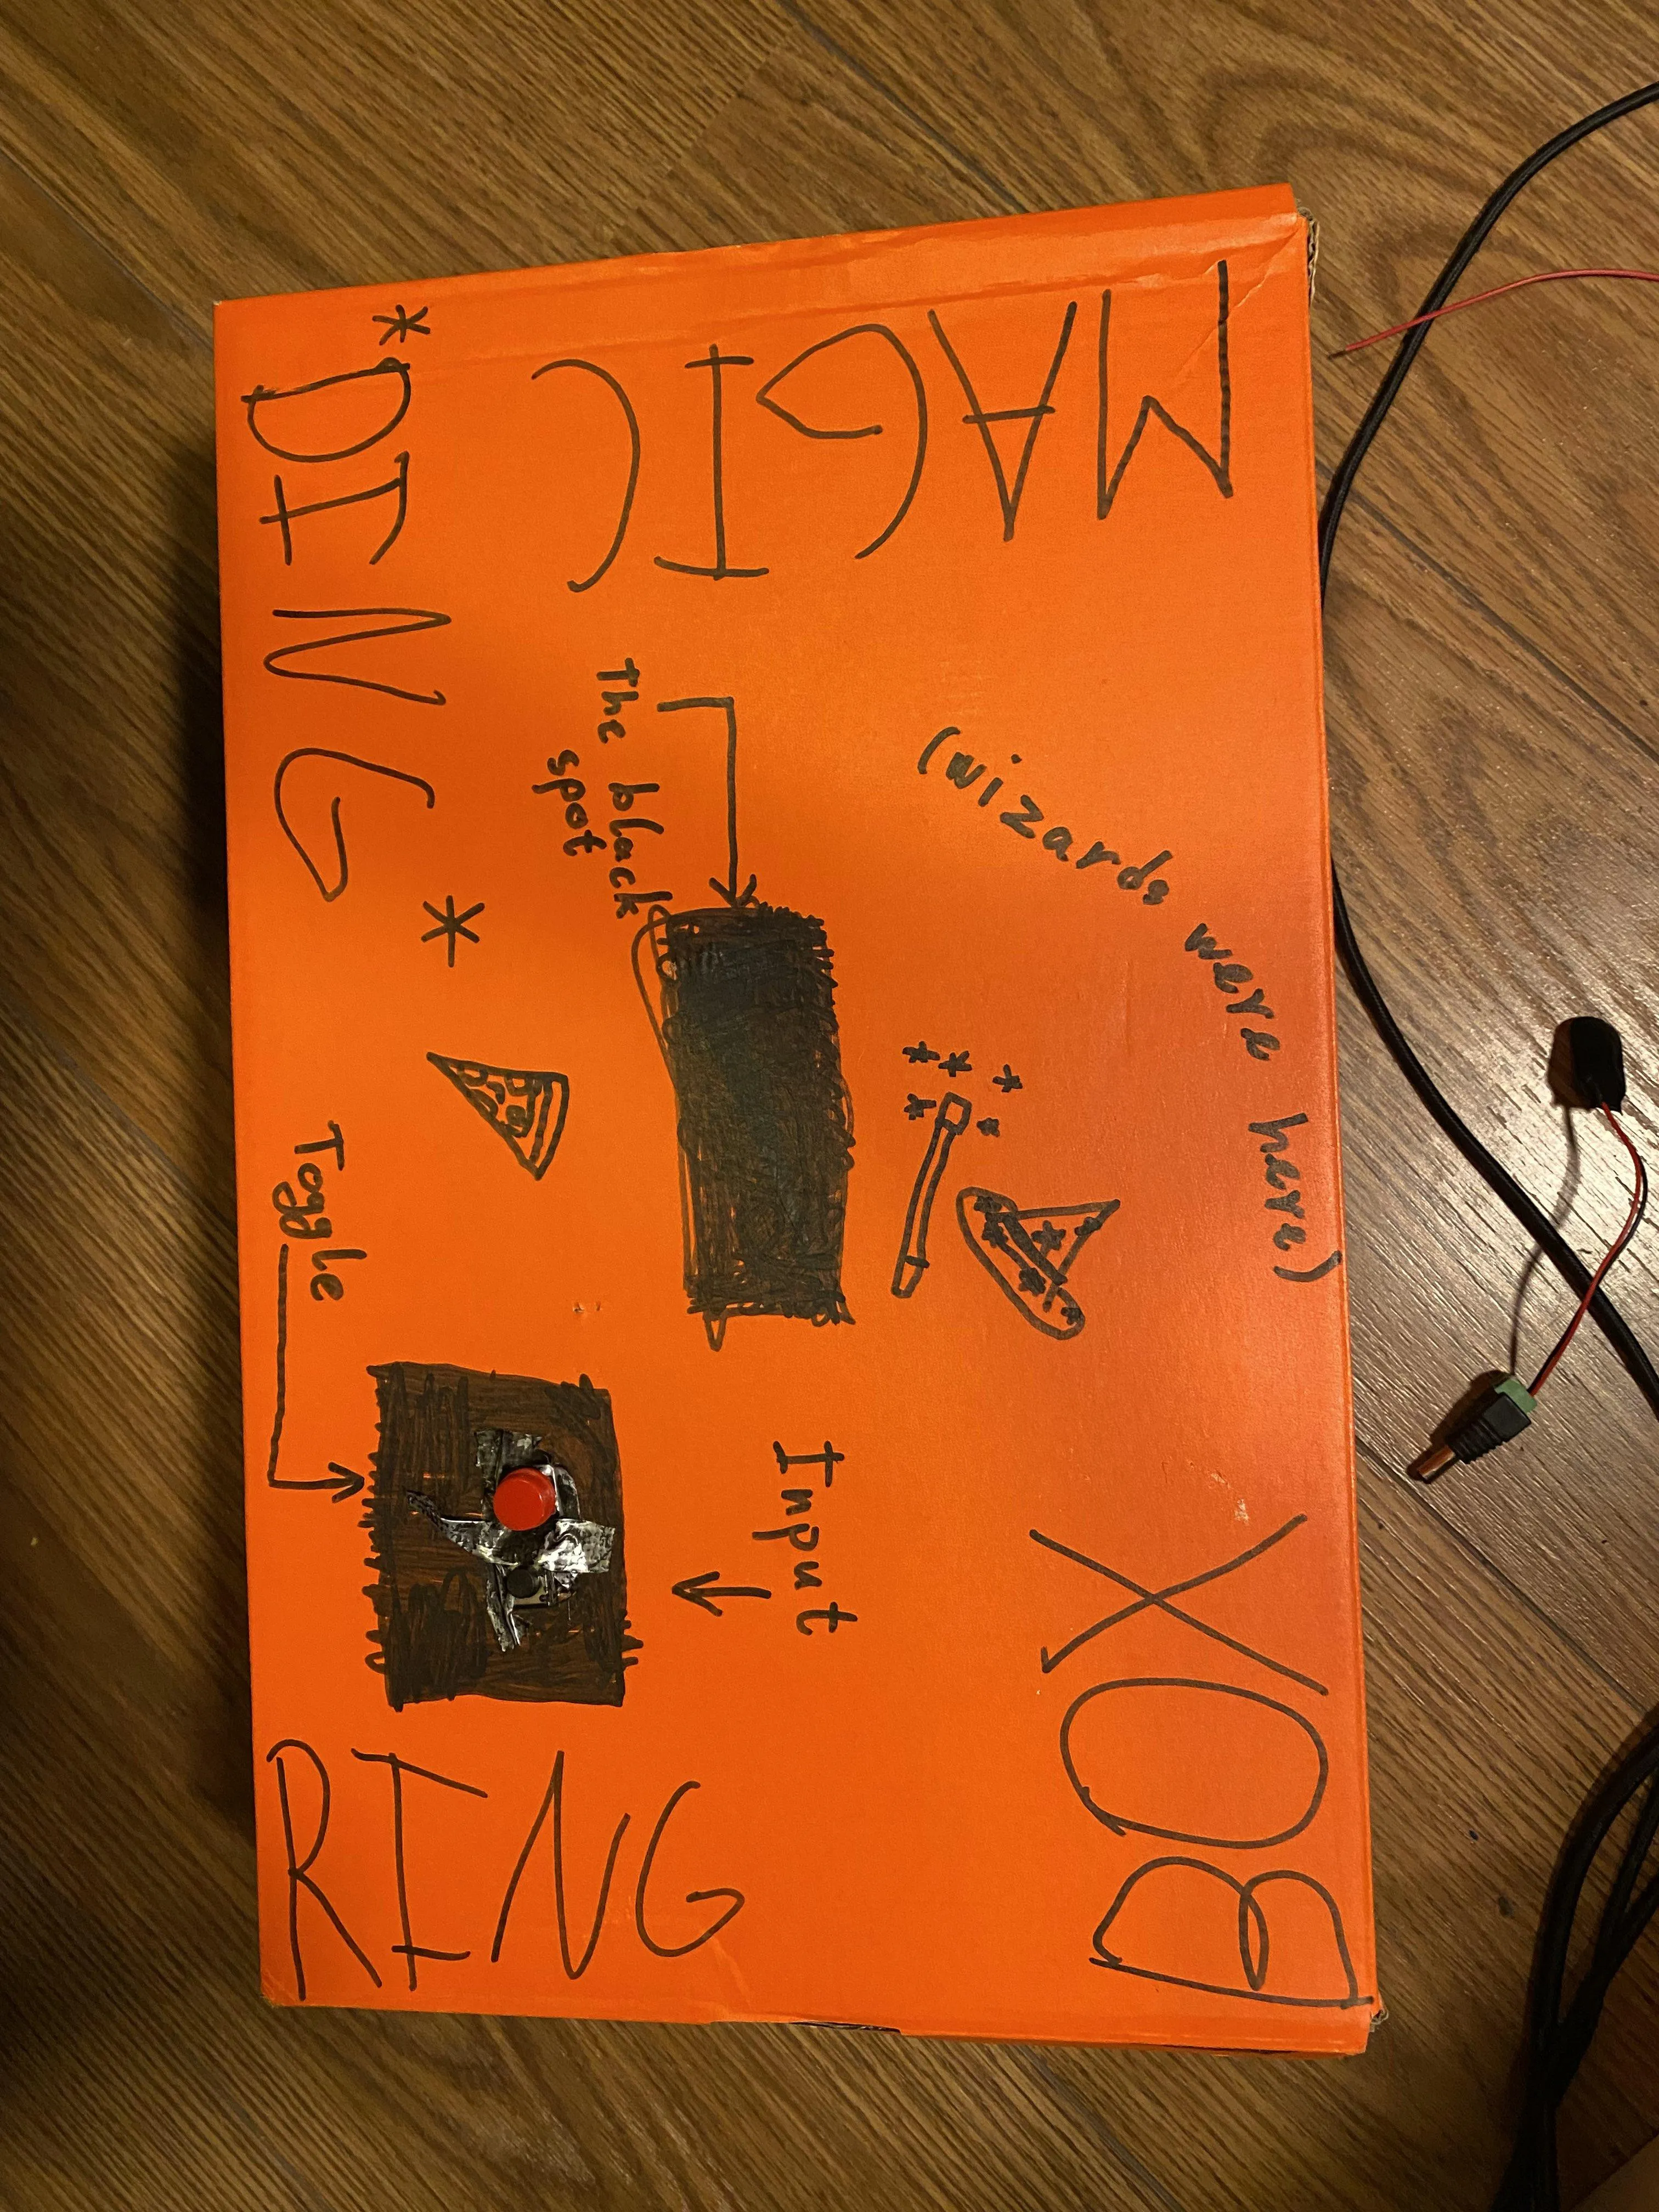 MAGIC
BOX
(wizards were here)
The black
spot
Input
Toggle
*DING*
RING